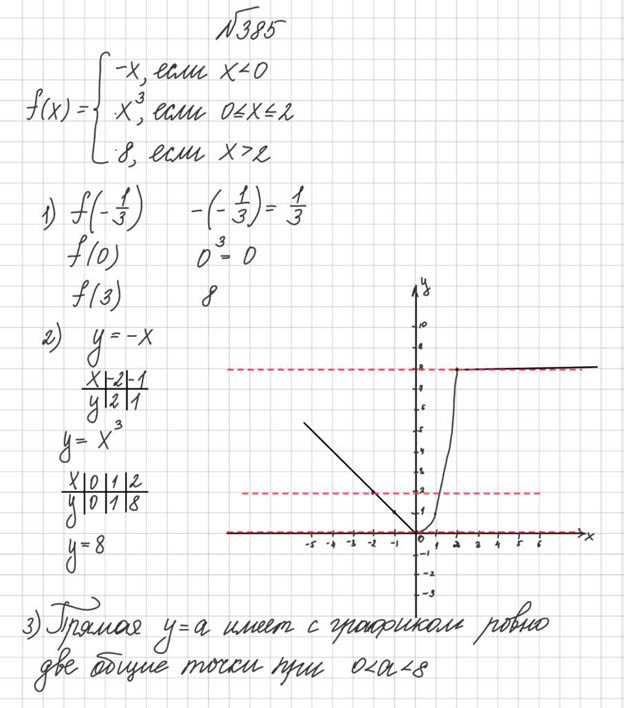 №385
f(x) = { -x, если x<0
x³, если 0≤x≤2
8, если x>2
1) f(-1/3) -(-1/3) = 1/3
f(0) 0³ = 0
f(3) 8
2) y = -x
x | -2 | -1
y | 2 | 1
y = x³
x | 0 | 1 | 2
y | 0 | 1 | 8
y = 8
y
10
9
8
7
6
5
4
3
2
1
-5 -4 -3 -2 -1 0 1 2 3 4 5 6 x
-1
-2
-3
3) Прямая y=a имеет с графиком ровно
две общие точки при 0<a<8